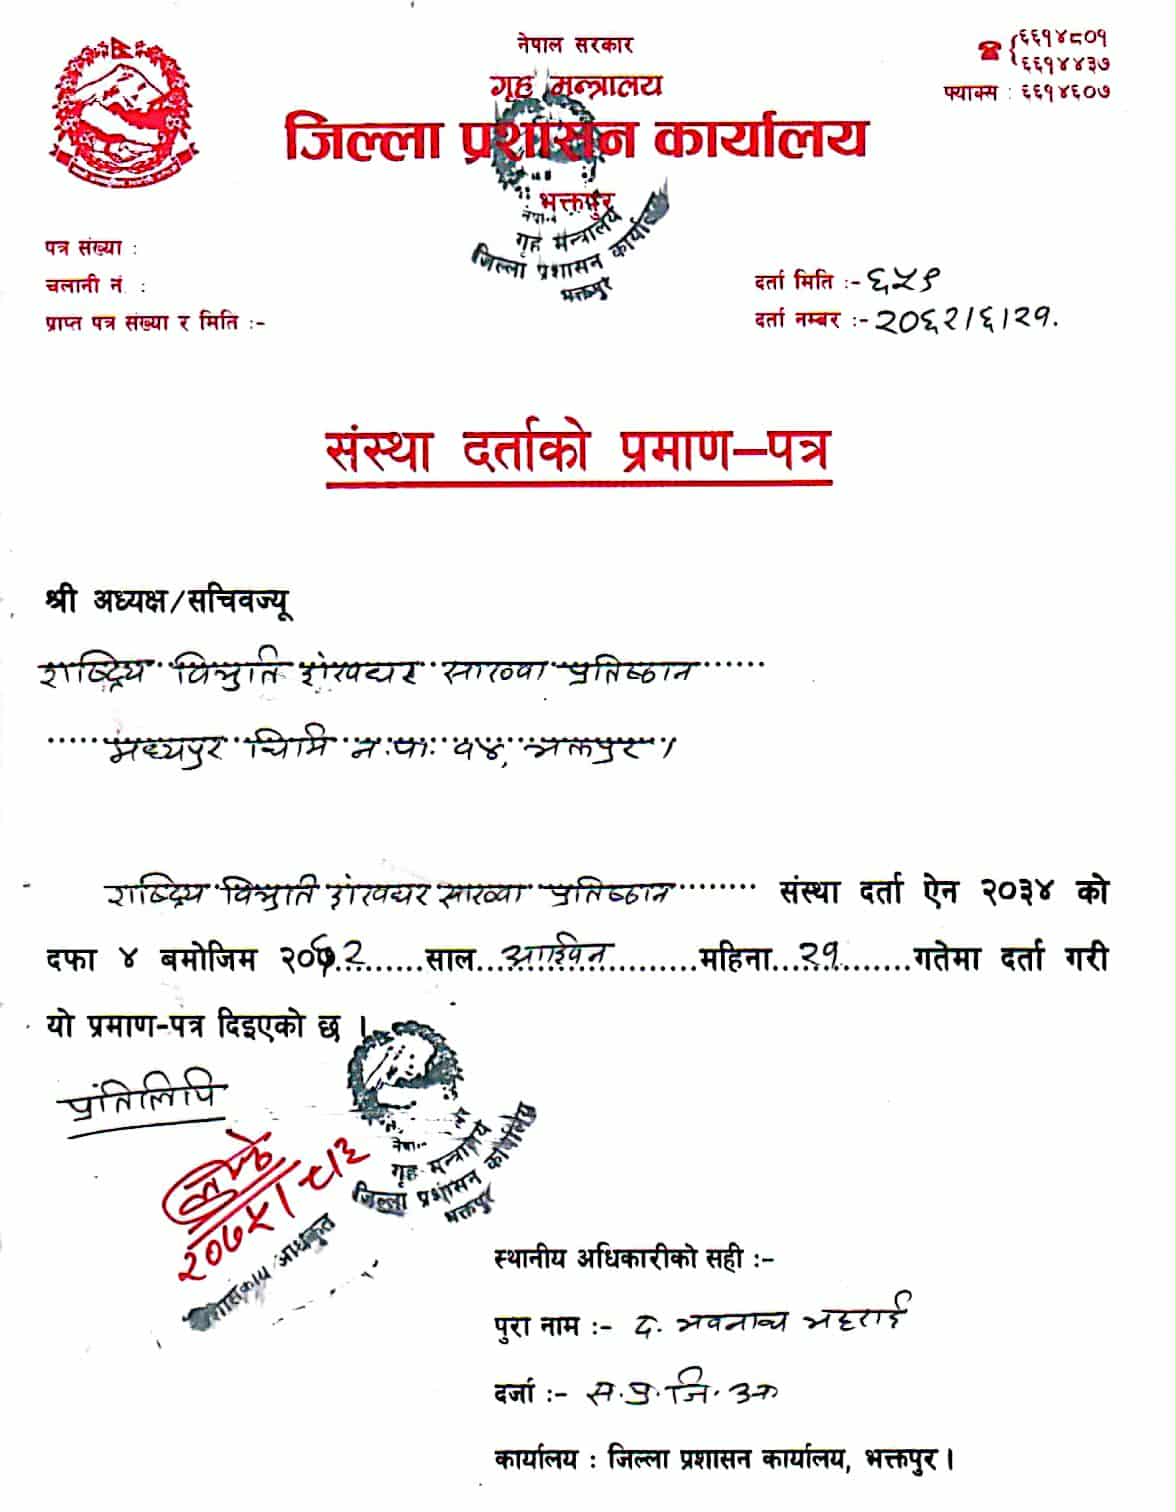 नेपाल सरकार
गृह मन्त्रालय
जिल्ला प्रशासन कार्यालय
भक्तपुर
६६१४८०१
६६१४४३७
फ्याक्स : ६६१४६०७
नेपा
गृह मन्त्रालय
जिल्ला प्रशासन कार्यालय
भक्तपुर
पत्र संख्या :
चलानी नं :
प्राप्त पत्र संख्या र मिति :-
दर्ता मिति :- ६५९
दर्ता नम्बर :- २०६२/६/२१.
संस्था दर्ताको प्रमाण-पत्र
श्री अध्यक्ष/सचिवज्यू
राष्ट्रिय विभुति शंखधर साख्वा प्रतिष्ठान
मध्यपुर थिमि न.पा. १४, भक्तपुर।
राष्ट्रिय विभुति शंखधर साख्वा प्रतिष्ठान संस्था दर्ता ऐन २०३४ को
दफा ४ बमोजिम २०६२ साल आश्विन महिना २१ गतेमा दर्ता गरी
यो प्रमाण-पत्र दिइएको छ ।
प्रतिलिपि
२०७५/८/३
नेपा
गृह मन्त्रालय
जिल्ला प्रशासन कार्यालय
भक्तपुर
स्थानीय अधिकारीको सही :-
पुरा नाम :- द. भवनाथ भट्टराई
दर्जा :- स.प्र.जि.अ
कार्यालय : जिल्ला प्रशासन कार्यालय, भक्तपुर ।